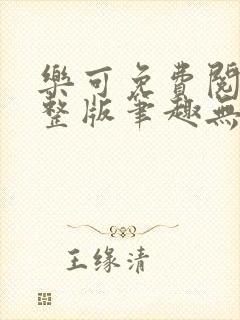 樂可免費閱
整版筆趣無
王缘清